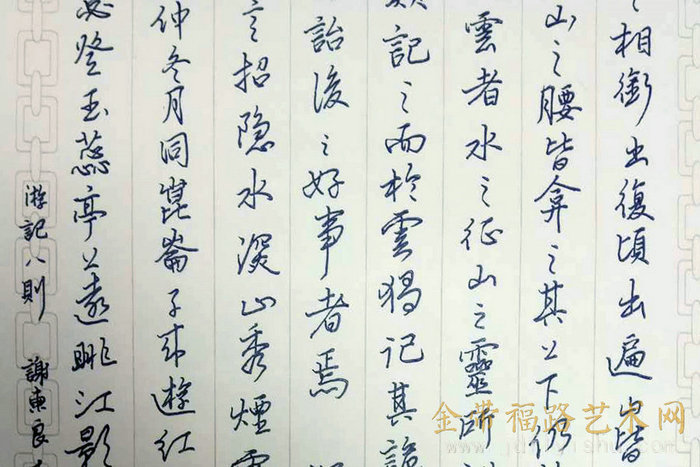 相銜出復頃出遍山皆
山之腰皆弇之其上下仍
雲者水之征山之靈所
記之而於雲獨記其詭
詒後之好事者焉
言招隐水深山秀煙雲
仲冬月同崑崙子来遊紅
登玉蕊亭上遠眺江影
游記八則 謝東良
金带福路艺术网